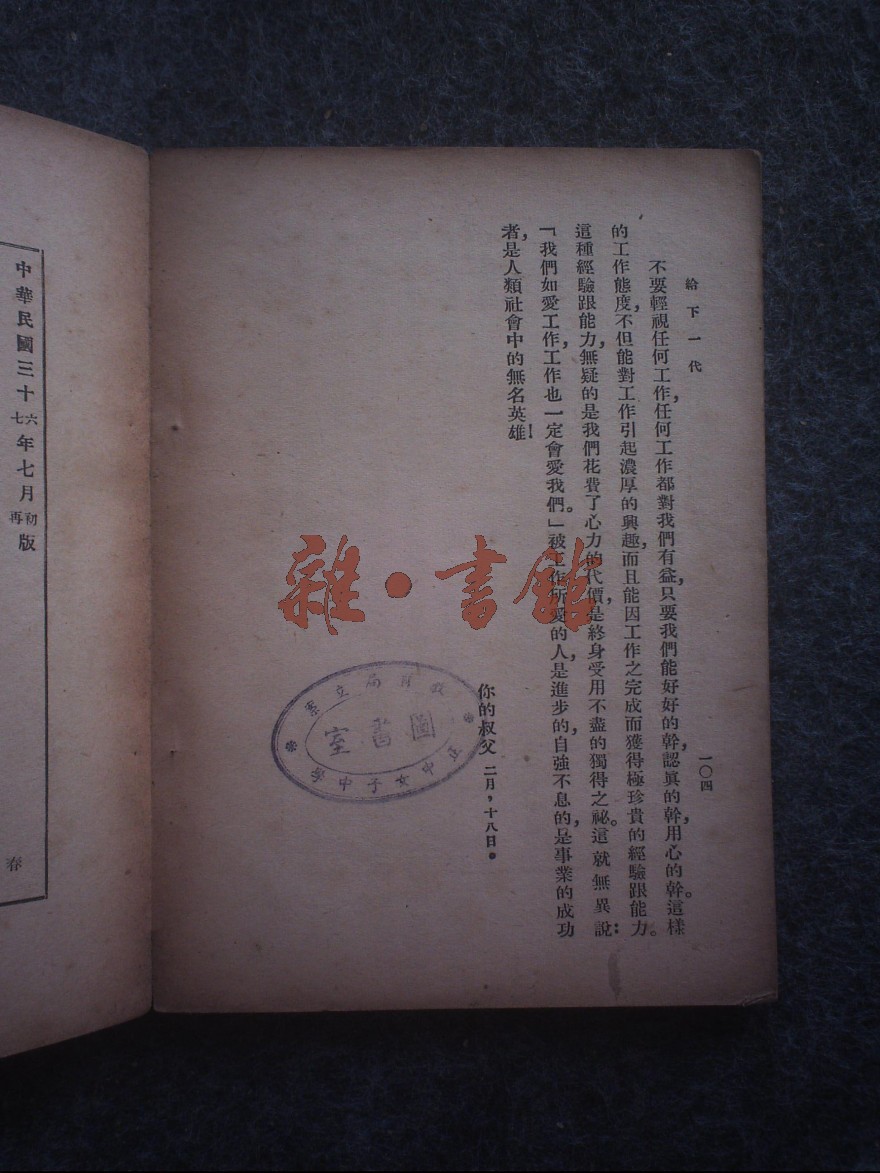 給下一代
一〇四
不要輕視任何工作,任何工作都對我們有益,只要我們能好好的幹,認眞的幹,用心的幹。這樣
的工作態度,不但能對工作引起濃厚的興趣,而且能因工作之完成而獲得極珍貴的經驗跟能力。
這種經驗跟能力,無疑的是我們花費了心力的代價,是終身受用不盡的獨得之祕。這就無異說:
「我們如愛工作,工作也一定會愛我們。」被工作所愛的人,是進步的,自強不息的,是事業的成功
者,是人類社會中的無名英雄!
你的叔父 二月,十八日。
局立案
圖書室
正中女子中學
雜·書館
中華民國三十六七年七月初再版
春